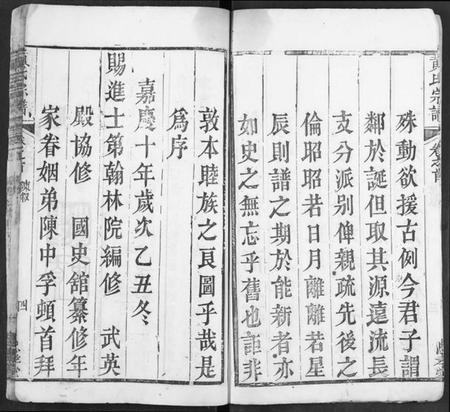 殊動欲援古例今君子謂
鄰於誕但取其源遠流長
支分派别俾親疏先後之
倫昭昭若日月離離若星
辰則譜之期於能新者亦
如史之無忘乎舊也詎非
敦本睦族之良圖乎哉是
爲序
嘉慶十年歲次乙丑冬
賜進士第翰林院編修 武英
殿協修 國史舘纂修年
家眷姻弟陳中孚頓首拜
陳叙
四